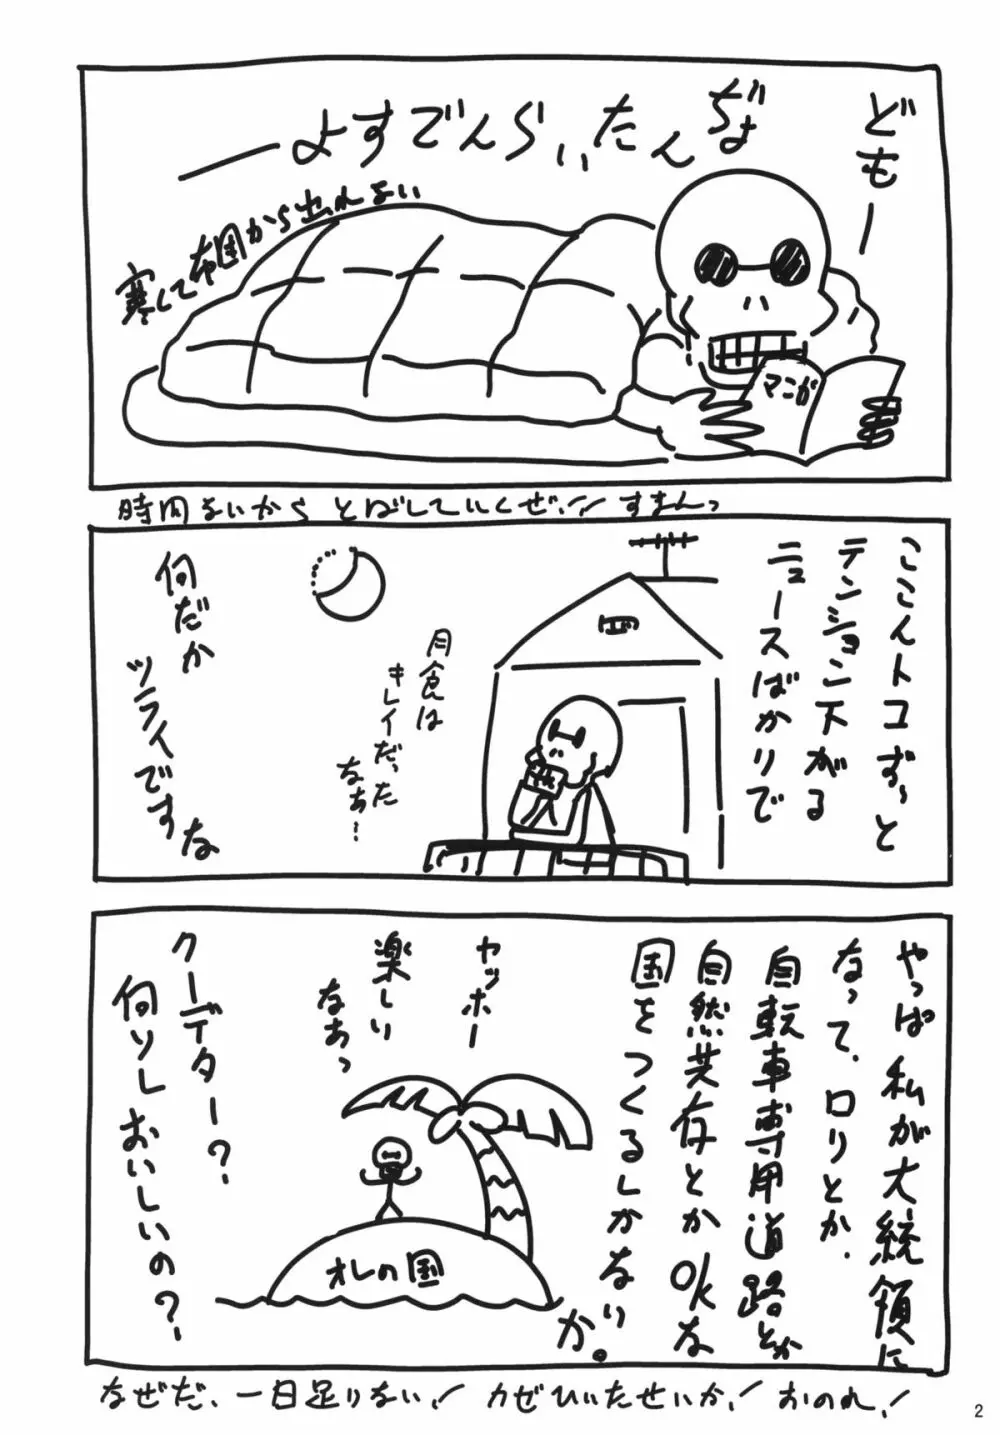 どもー
ぢょ
たんい
らんです
よー
寒くて布団から出れない
マンガ
時間ないからとばしていくぜ!! すまんっ
ここんトコずっと
テンション下がる
ニュースばかりで
月食は
キレイだった
なぁ…
何だか
ツライですな
やっぱ私が大統領に
なって、ロリとか、
自転車専用道路とか
自然共存とかOKな
国をつくるしかないか。
ヤッホー
楽しい
なあっ
オレの国
クーデター?
何ソレおいしいの?
なぜだ、一日足りない! カゼひいたせいか! おのれ!
2